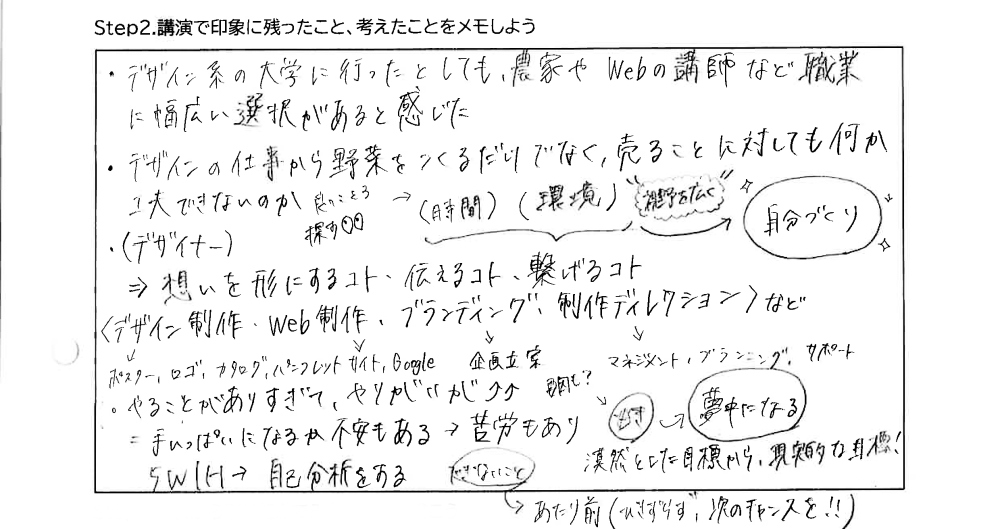 Step2.講演で印象に残ったこと、考えたことをメモしよう
・デザイン系の大学に行ったとしても、農家や Webの講師など職業
に幅広い選択があると感じた
・デザインの仕事から野菜をつくるだけでなく、売ることに対しても何か
工夫できないのか 良いところ 探す → (時間) (環境) "視野を広く" → 自分づくり
・(デザイナー)
⇒ 想いを形にするコト・伝えるコト、繋げるコト
〈デザイン制作・Web制作、ブランディング、制作ディレクション〉など
ポスター、ロゴ、カタログ、パンフレット サイト、Google 企画立案 マネジメント、プランニング、サポート
。やることがありすぎて、やりがいが↑↑ → 夢中になる
= 手いっぱいになるか不安もある → 苦労もあり
漠然とした目標から、現実的な目標!
5W1H → 自己分析をする できないこと
→ あたり前 (ひきずらず、次のチャンスを!!)